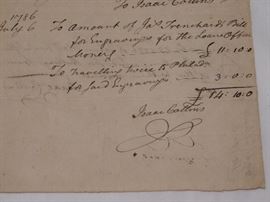 To Isaac Collins
1786
July 6 To Amount of Jas. Trenchard's Bill
for Engravings for the Loan Office
Money £ 11:10:0
To travelling twice to Philada.
for said Engravings 3:0:0
£ 14:10:0
Isaac Collins